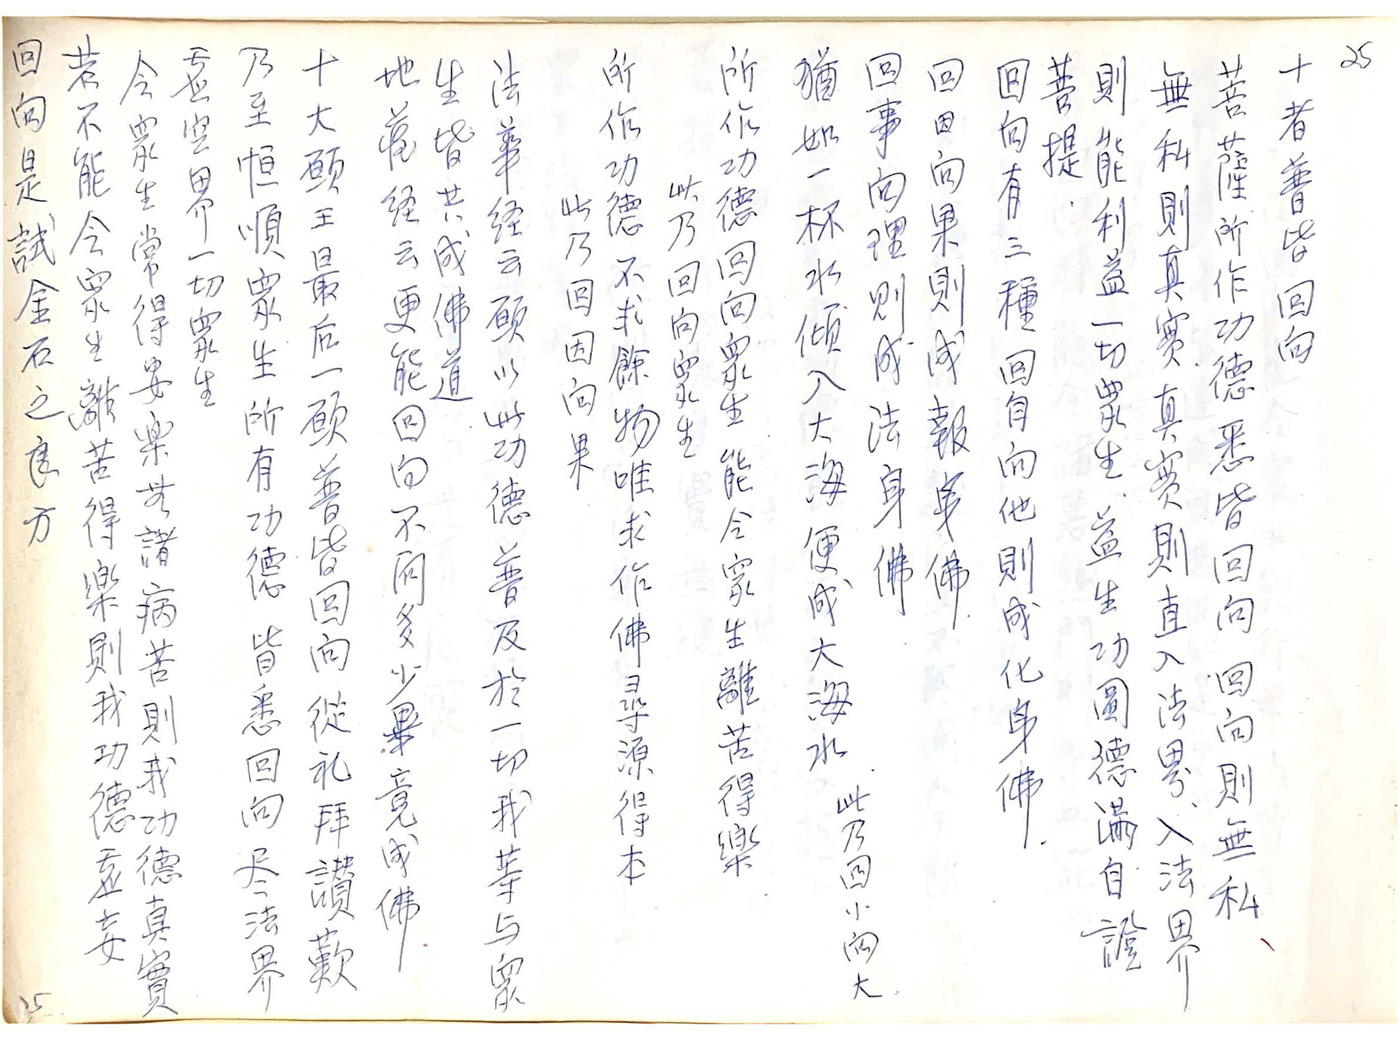 25
十者普皆回向
菩薩所作功德悉皆回向 回向則無私
無私則真實真實則直入法界、入法界
則能利益一切眾生.益生功圓德滿自證
菩提.
回向有三種 回自向他則成化身佛.
回因向果則成報身佛.
回事向理則成法身佛
猶如一杯水傾入大海便成大海水.此乃回小向大.
所作功德回向眾生能令眾生離苦得樂
此乃回向眾生
所作功德不求餘物唯求作佛尋源得本
此乃回因向果
法華经云願以此功德普及於一切我等与眾
生皆共成佛道
地藏经云更能回向不問多少畢竟成佛
十大願王最后一願普皆回向從礼拜讚歎
乃至恒順眾生所有功德皆悉回向尽法界
虛空界一切眾生
令眾生常得安樂无諸病苦則我功德真實
若不能令眾生離苦得樂則我功德虛妄
回向是試金石之良方
25